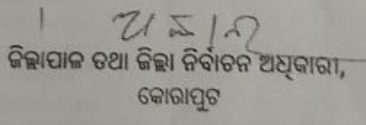 ଜିଲ୍ଲାପାଳ ତଥା ଜିଲ୍ଲା ନିର୍ବାଚନ ଅଧିକାରୀ,
କୋରାପୁଟ